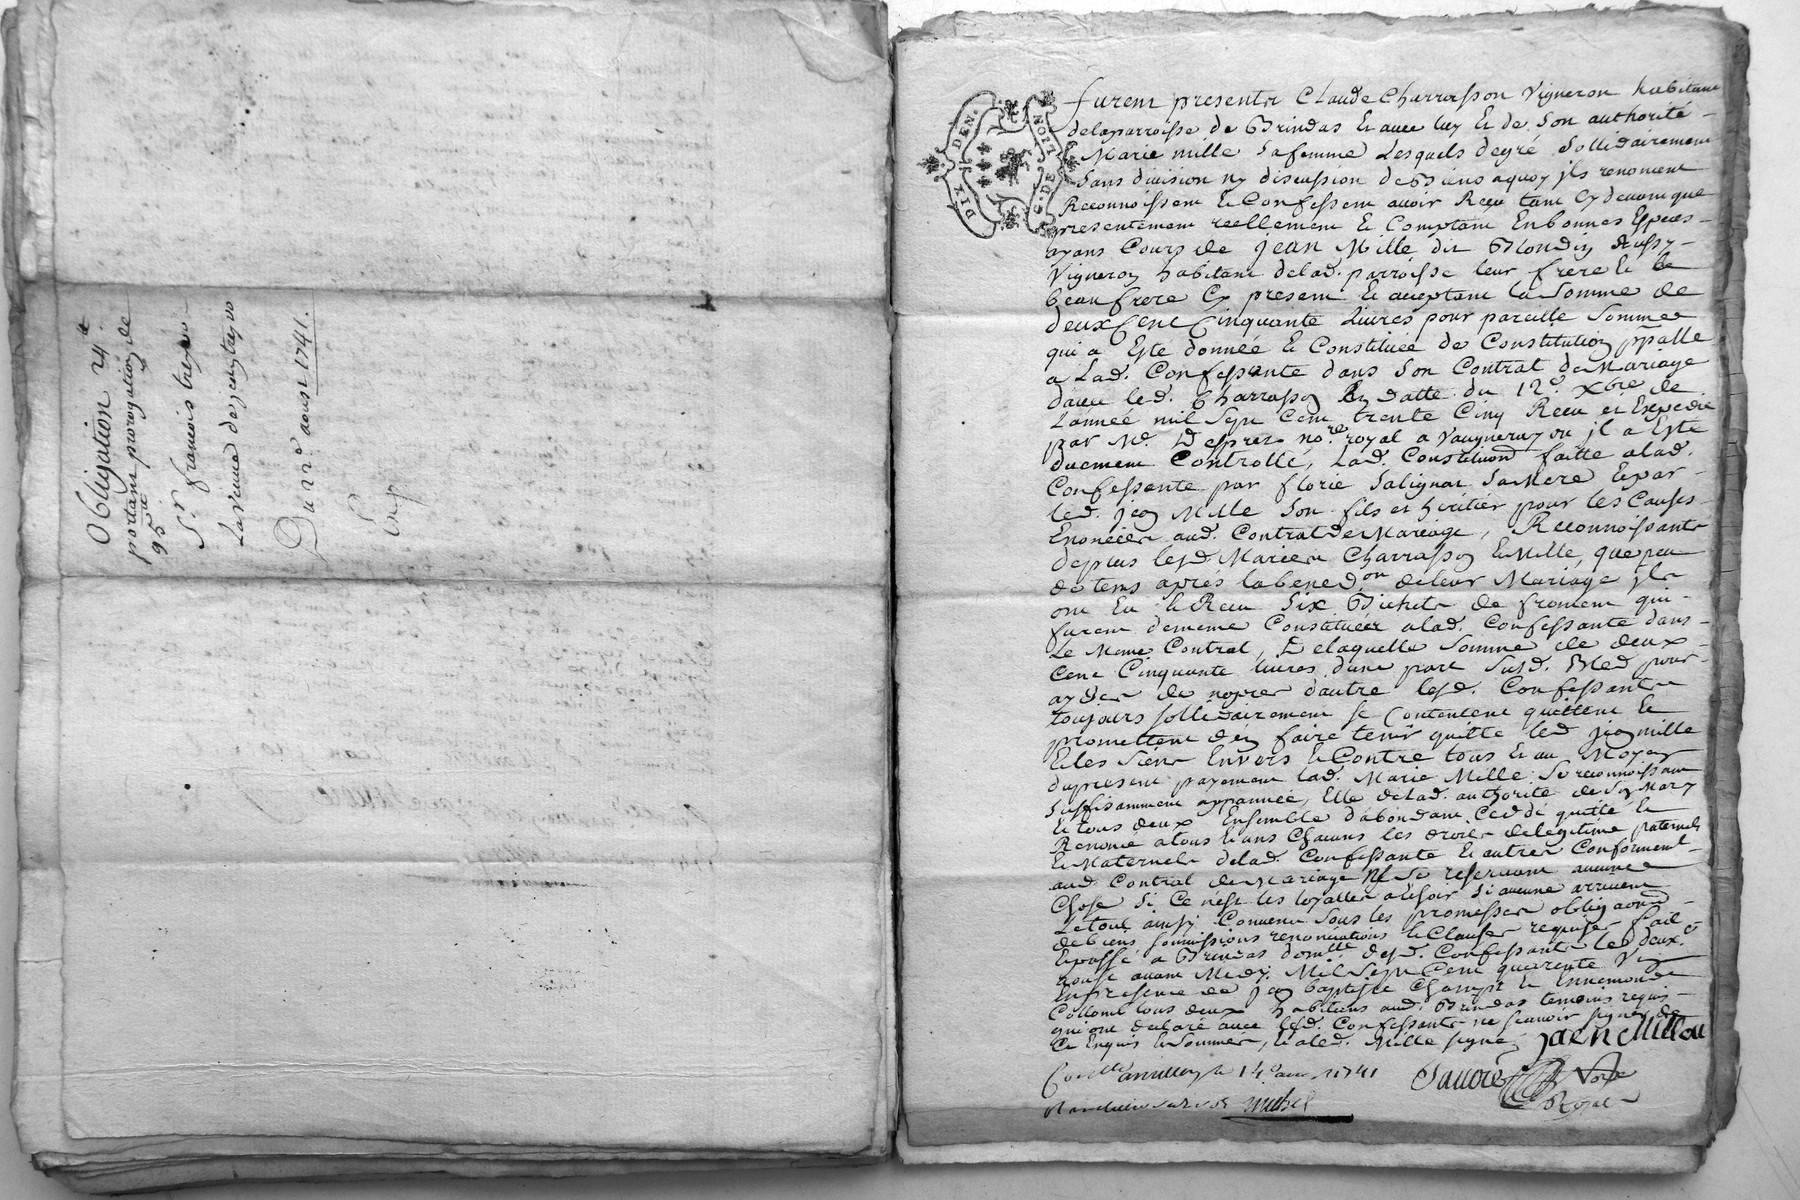 Obligation 24 lt
portant prorogation de
95 lt
Sr. francois
La veuve de
Du 2 aoust 1741.
Exp
DIX DEN.
G. DE LION
furent presents Claude Charrasson Vigneron habitant
de la parroisse de Brindas et avec luy et de son authorité
Marie mille sa femme Lesquels de gré sollidairement
sans division ny discussion de Biens a quoy ils renoncent
Reconnoissent et Confessent avoir Receu tant Cy devant que
presentement reellement et Comptant En bonnes Especes
ayans Cours de Jean Mille dit Blondin Aussy
Vigneron habitant de lad. parroisse leur frere et
beau frere Cy present et acceptant la Somme de
deux Cent Cinquante Livres pour pareille Somme
qui a Esté donnée et Constituée de Constitution ppalle
a Lad. Confessante dans Son Contrat de Mariage
d'avec led. Charrasson En datte du 12e Xbre de
L'année mil Sept Cent trente Cinq Receu et Expedié
par Me. Desprez nore. royal a Vaugneray ou il a Esté
duement Controllé, Lad. Constitution faitte a lad.
Confessante par florie Salignat Sa Mere et par
led. Jean Mille Son fils et heritier pour les Causes
Enoncées aud. Contrat de Mariage, Reconnoissants
de plus lesd. Mariés Charrasson et Mille, que peu
de tems aprés la bened.on de leur Mariage ils
ont Eu et Receu Six Bichets de froment qui
furent de meme Constitués a lad. Confessante dans
Le meme Contrat, De laquelle Somme de deux
Cent Cinquante livres d'une part Susd. Bled pour
ayder de nopces d'autre lesd. Confessants
toujours sollidairement se Contentent quittent et
promettent d'en faire tenir quitte led. Jean mille
et les Siens Envers et Contre tous et au Moyen
du present payement lad. Marie Mille Se reconnoissant
Suffisamment appannée, Elle de lad. authorité de Son Mary
et tous deux Ensemble d'abondant Cedde quitte et
Renonce a tous et uns Chacuns les droits de legitime paternels
et Maternels de lad. Confessante et autres Conformement
aud. Contrat de Mariage ne se reservant aucune
Chose Si Ce n'est les loyalles Si aucune arrivent
Le tout ainsy Convenu Sous les promesses obligaons
de biens soumissions renonciations et Clauses requises fait
et passé a Brindas domlle desd. Confessants le deux e
aoust avant Midy Mil Sept Cent quarente Un
En presence de Jean Baptiste Champt et Ennemond
Collomb tous deux habitans aud. Brindas temoins requis
qui ont declaré avec lesd. Confessants ne scavoir signer de
Ce Enquis et Sommés, et aled. Mille signé, Jaen Millou
Conllé a le 14e aoust 1741
Sauore Nore
Royal
michel